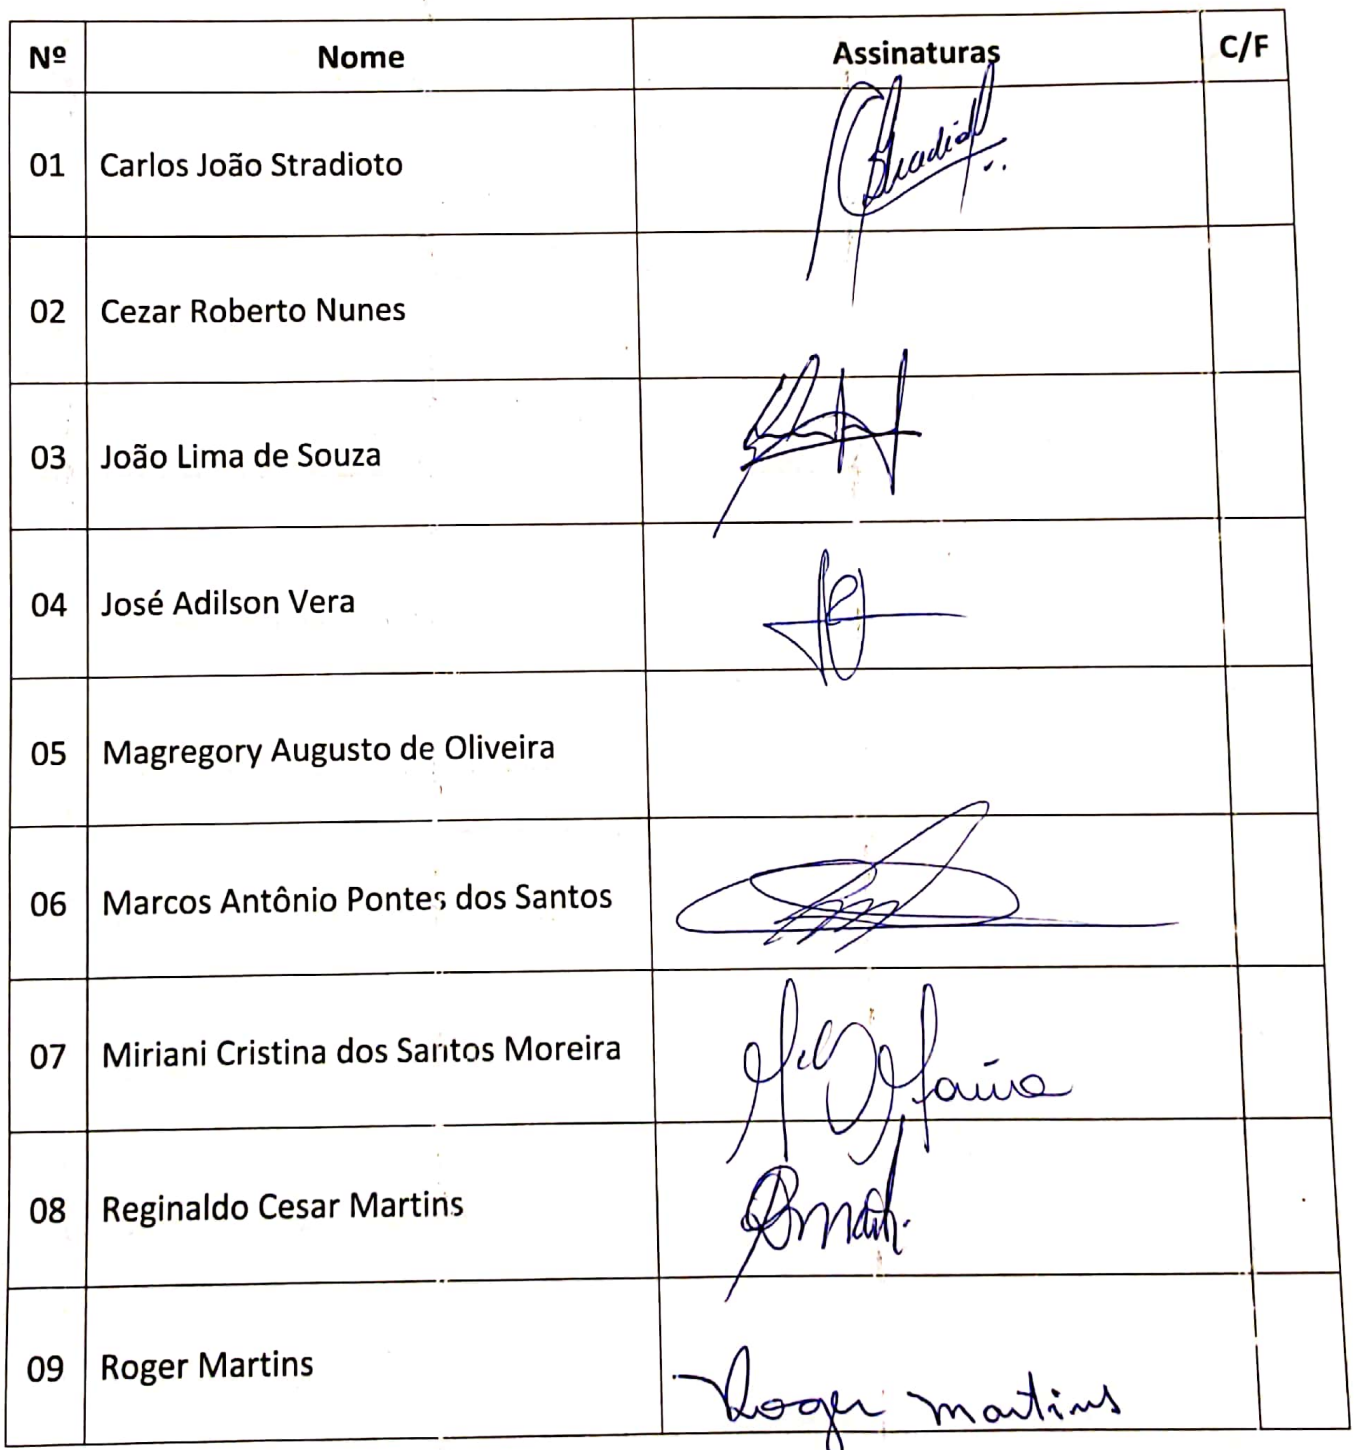 Nº Nome Assinaturas C/F
01 Carlos João Stradioto Stradioto
02 Cezar Roberto Nunes
03 João Lima de Souza
04 José Adilson Vera
05 Magregory Augusto de Oliveira
06 Marcos Antônio Pontes dos Santos
07 Miriani Cristina dos Santos Moreira
08 Reginaldo Cesar Martins
09 Roger Martins Roger Martins